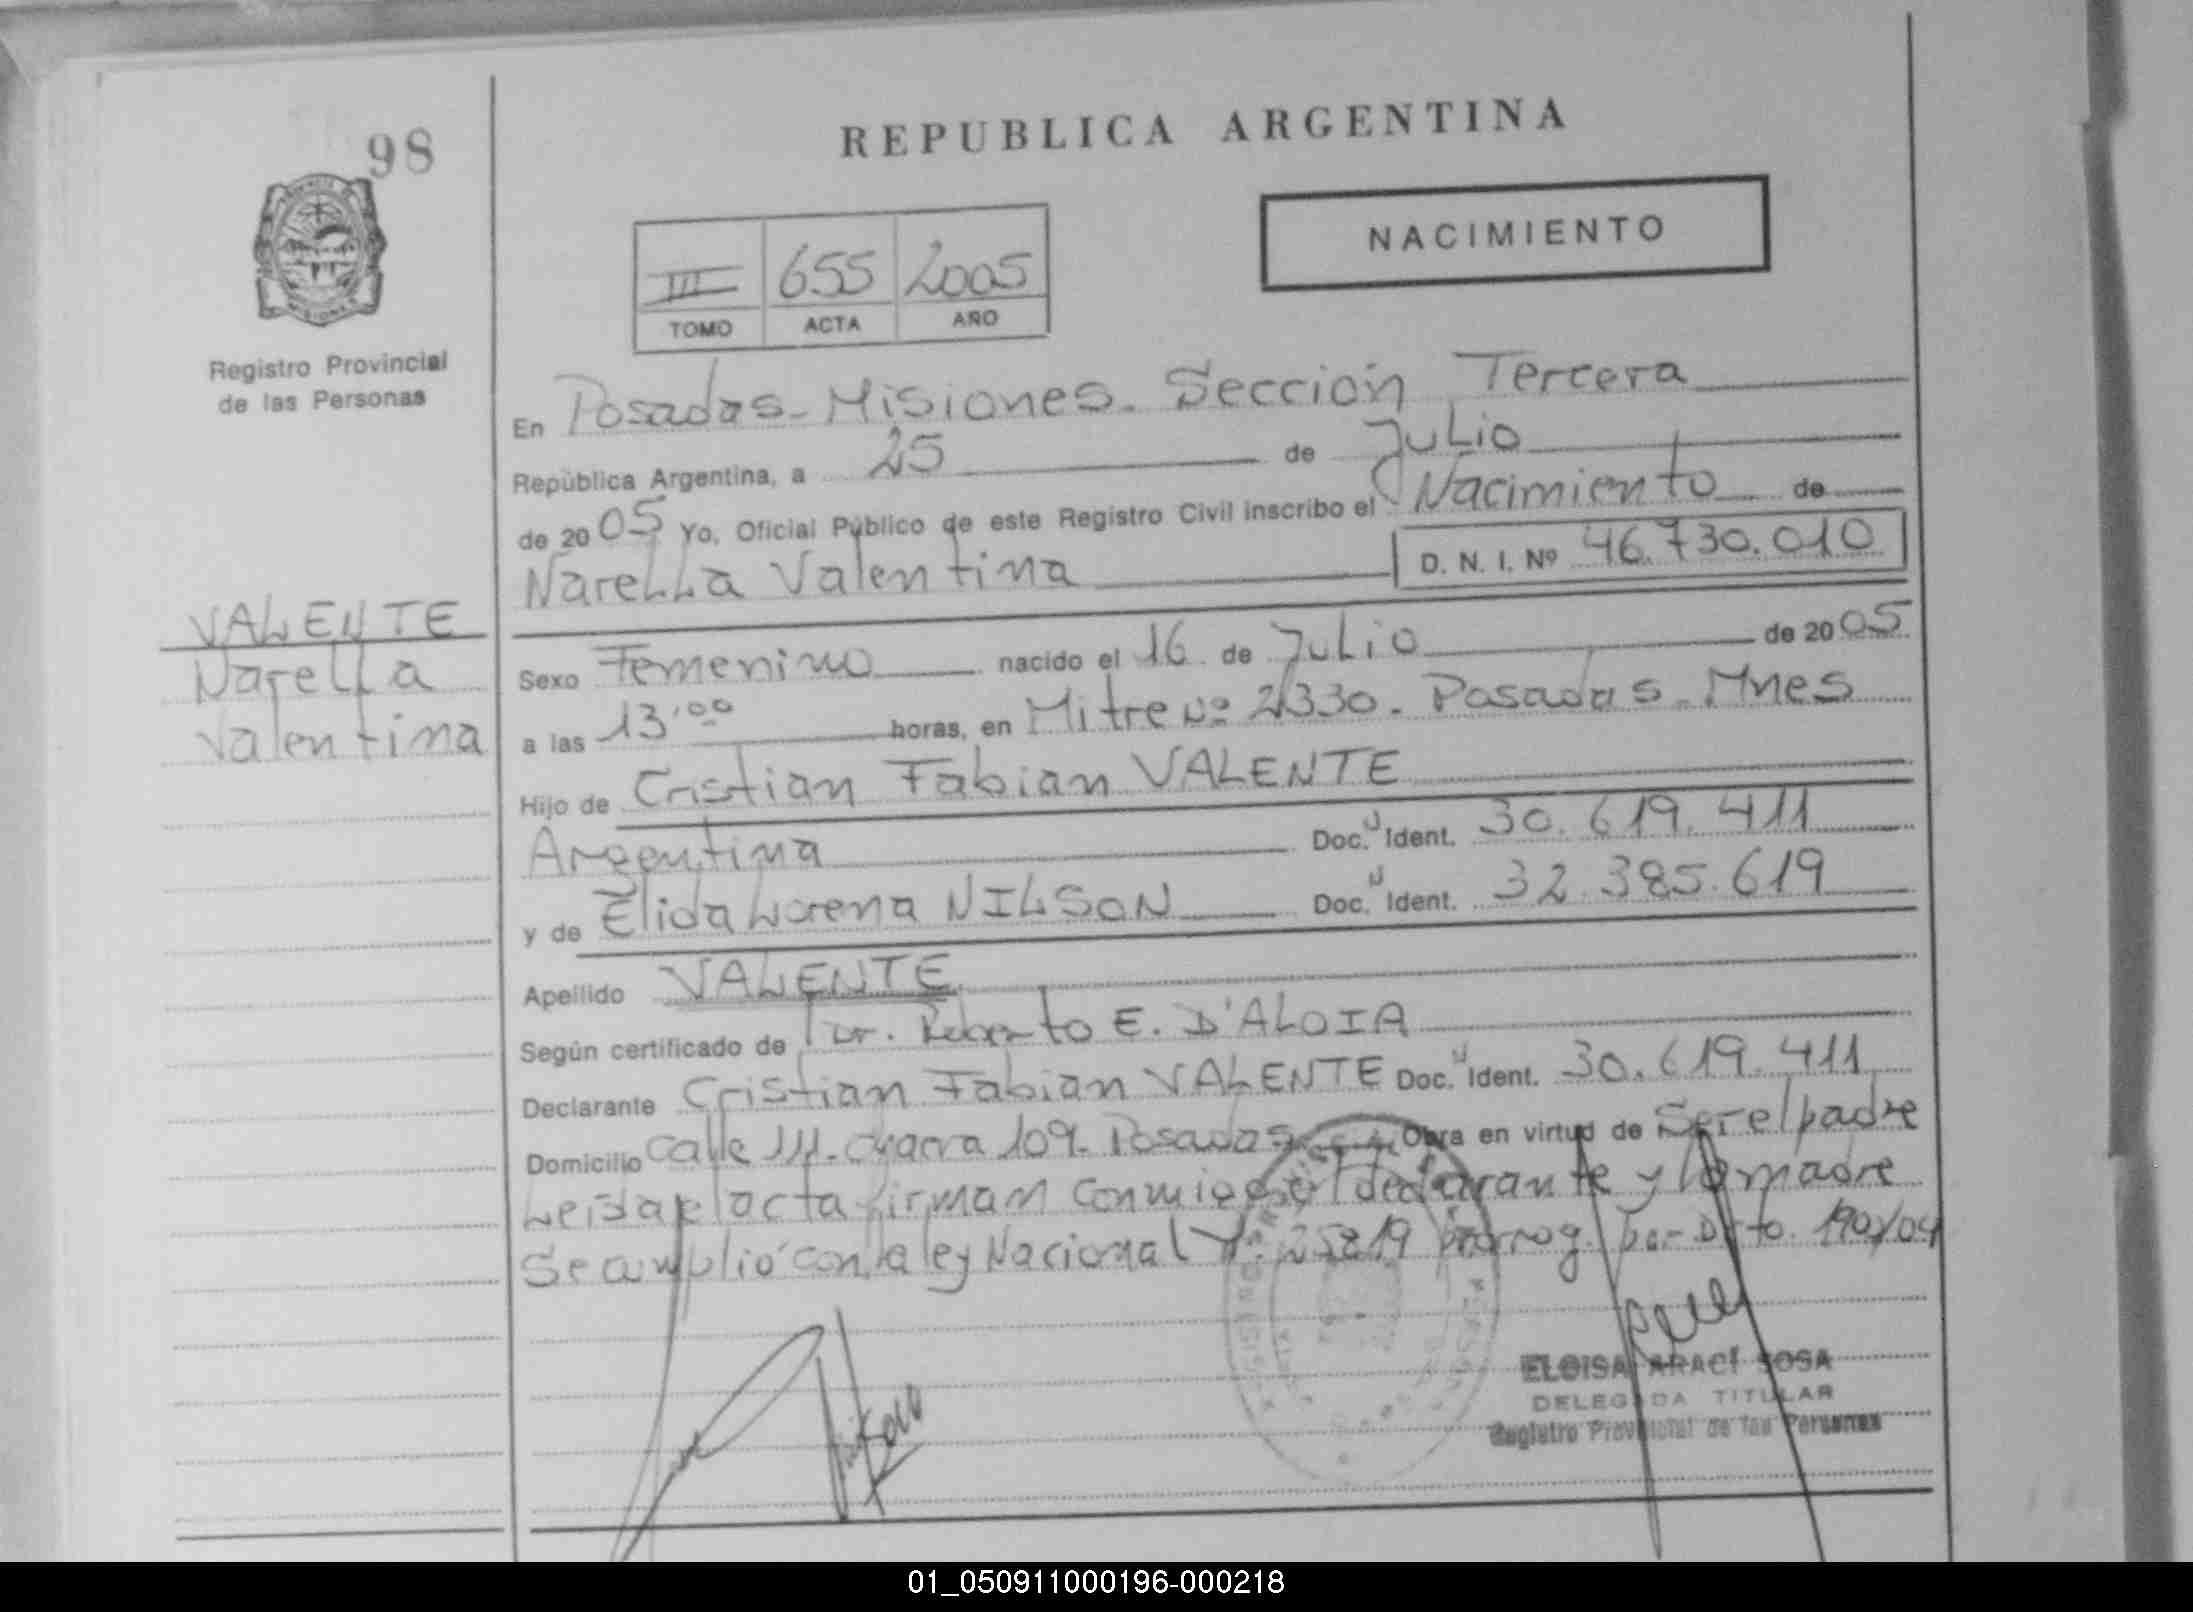 98
REPUBLICA ARGENTINA
NACIMIENTO
III 655 2005
TOMO ACTA AÑO
Registro Provincial
de las Personas
En Posadas - Misiones. Sección Tercera
República Argentina, a 25 de Julio
de 2005 Yo, Oficial Público de este Registro Civil inscribo el Nacimiento de
Narella Valentina D. N. I. Nº 46.730.010
VALENTE
Narella
Valentina
Sexo Femenino nacido el 16 de Julio de 2005
a las 13'00 horas, en Mitre Nº 2330. Posadas - Mnes
Hijo de Cristian Fabian VALENTE
Argentina Doc. U Ident. 30.619.411
y de Elida Lorena NILSON Doc. U Ident. 32.385.619
Apellido VALENTE
Según certificado de Dr. Roberto E. D'ALOIA
Declarante Cristian Fabian VALENTE Doc. U Ident. 30.619.411
Domicilio Calle 111. chacra 109. Posadas Obra en virtud de Ser el padre
Leida el acta firman conmigo el declarante y la madre
Se cumplió con la ley Nacional Nº 25819 prorrog. por Dto. 190/04
ELOISA ARACI SOSA
DELEGADA TITULAR
Registro Provincial de las Personas
01_050911000196-000218